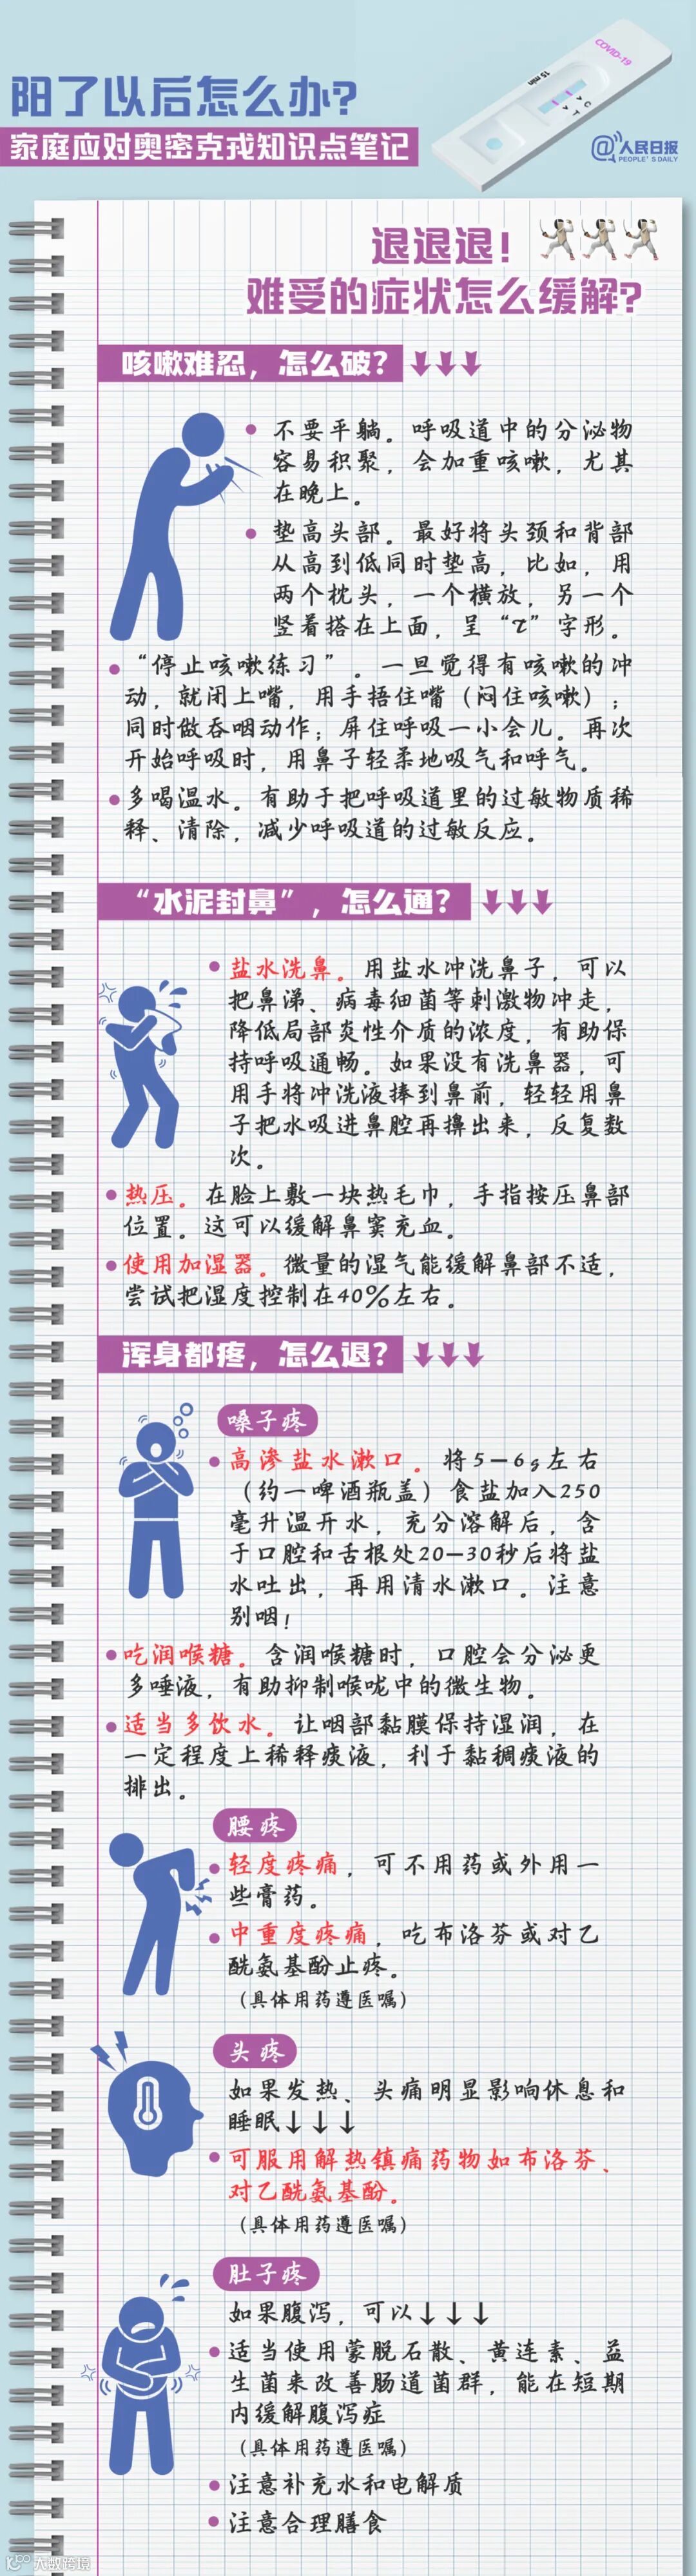 阳了以后怎么办?
家庭应对奥密克戎知识点笔记
COVID-19
15 min
C
T
@人民日报
PEOPLE'S DAILY
退退退!
难受的症状怎么缓解?
咳嗽难忍，怎么破?
不要平躺。呼吸道中的分泌物
容易积聚，会加重咳嗽，尤其
在晚上。
垫高头部。最好将头颈和背部
从高到低同时垫高，比如，用
两个枕头，一个横放，另一个
竖着搭在上面，呈“t”字形。
“停止咳嗽练习”。一旦觉得有咳嗽的冲
动，就闭上嘴，用手捂住嘴（闷住咳嗽）；
同时做吞咽动作；屏住呼吸一小会儿。再次
开始呼吸时，用鼻子轻柔地吸气和呼气。
多喝温水。有助于把呼吸道里的过敏物质稀
释、清除，减少呼吸道的过敏反应。
“水泥封鼻”，怎么通?
盐水洗鼻。用盐水冲洗鼻子，可以
把鼻涕、病毒细菌等刺激物冲走，
降低局部炎性介质的浓度，有助保
持呼吸通畅。如果没有洗鼻器，可
用手将冲洗液捧到鼻前，轻轻用鼻
子把水吸进鼻腔再擤出来，反复数
次。
热压。在脸上敷一块热毛巾，手指按压鼻部
位置。这可以缓解鼻窦充血。
使用加湿器。微量的湿气能缓解鼻部不适，
尝试把湿度控制在40%左右。
浑身都疼，怎么退?
嗓子疼
高渗盐水漱口。将5—6g左右
（约一啤酒瓶盖）食盐加入250
毫升温开水，充分溶解后，含
于口腔和舌根处20—30秒后将盐
水吐出，再用清水漱口。注意
别咽!
吃润喉糖。含润喉糖时，口腔会分泌更
多唾液，有助抑制喉咙中的微生物。
适当多饮水。让咽部黏膜保持湿润，在
一定程度上稀释痰液，利于黏稠痰液的
排出。
腰疼
轻度疼痛，可不用药或外用一
些膏药。
中重度疼痛，吃布洛芬或对乙
酰氨基酚止疼。
（具体用药遵医嘱）
头疼
如果发热、头痛明显影响休息和
睡眠↓↓↓
可服用解热镇痛药物如布洛芬、
对乙酰氨基酚。
（具体用药遵医嘱）
肚子疼
如果腹泻，可以↓↓↓
适当使用蒙脱石散、黄连素、益
生菌来改善肠道菌群，能在短期
内缓解腹泻症
（具体用药遵医嘱）
注意补充水和电解质
注意合理膳食
大数跨境